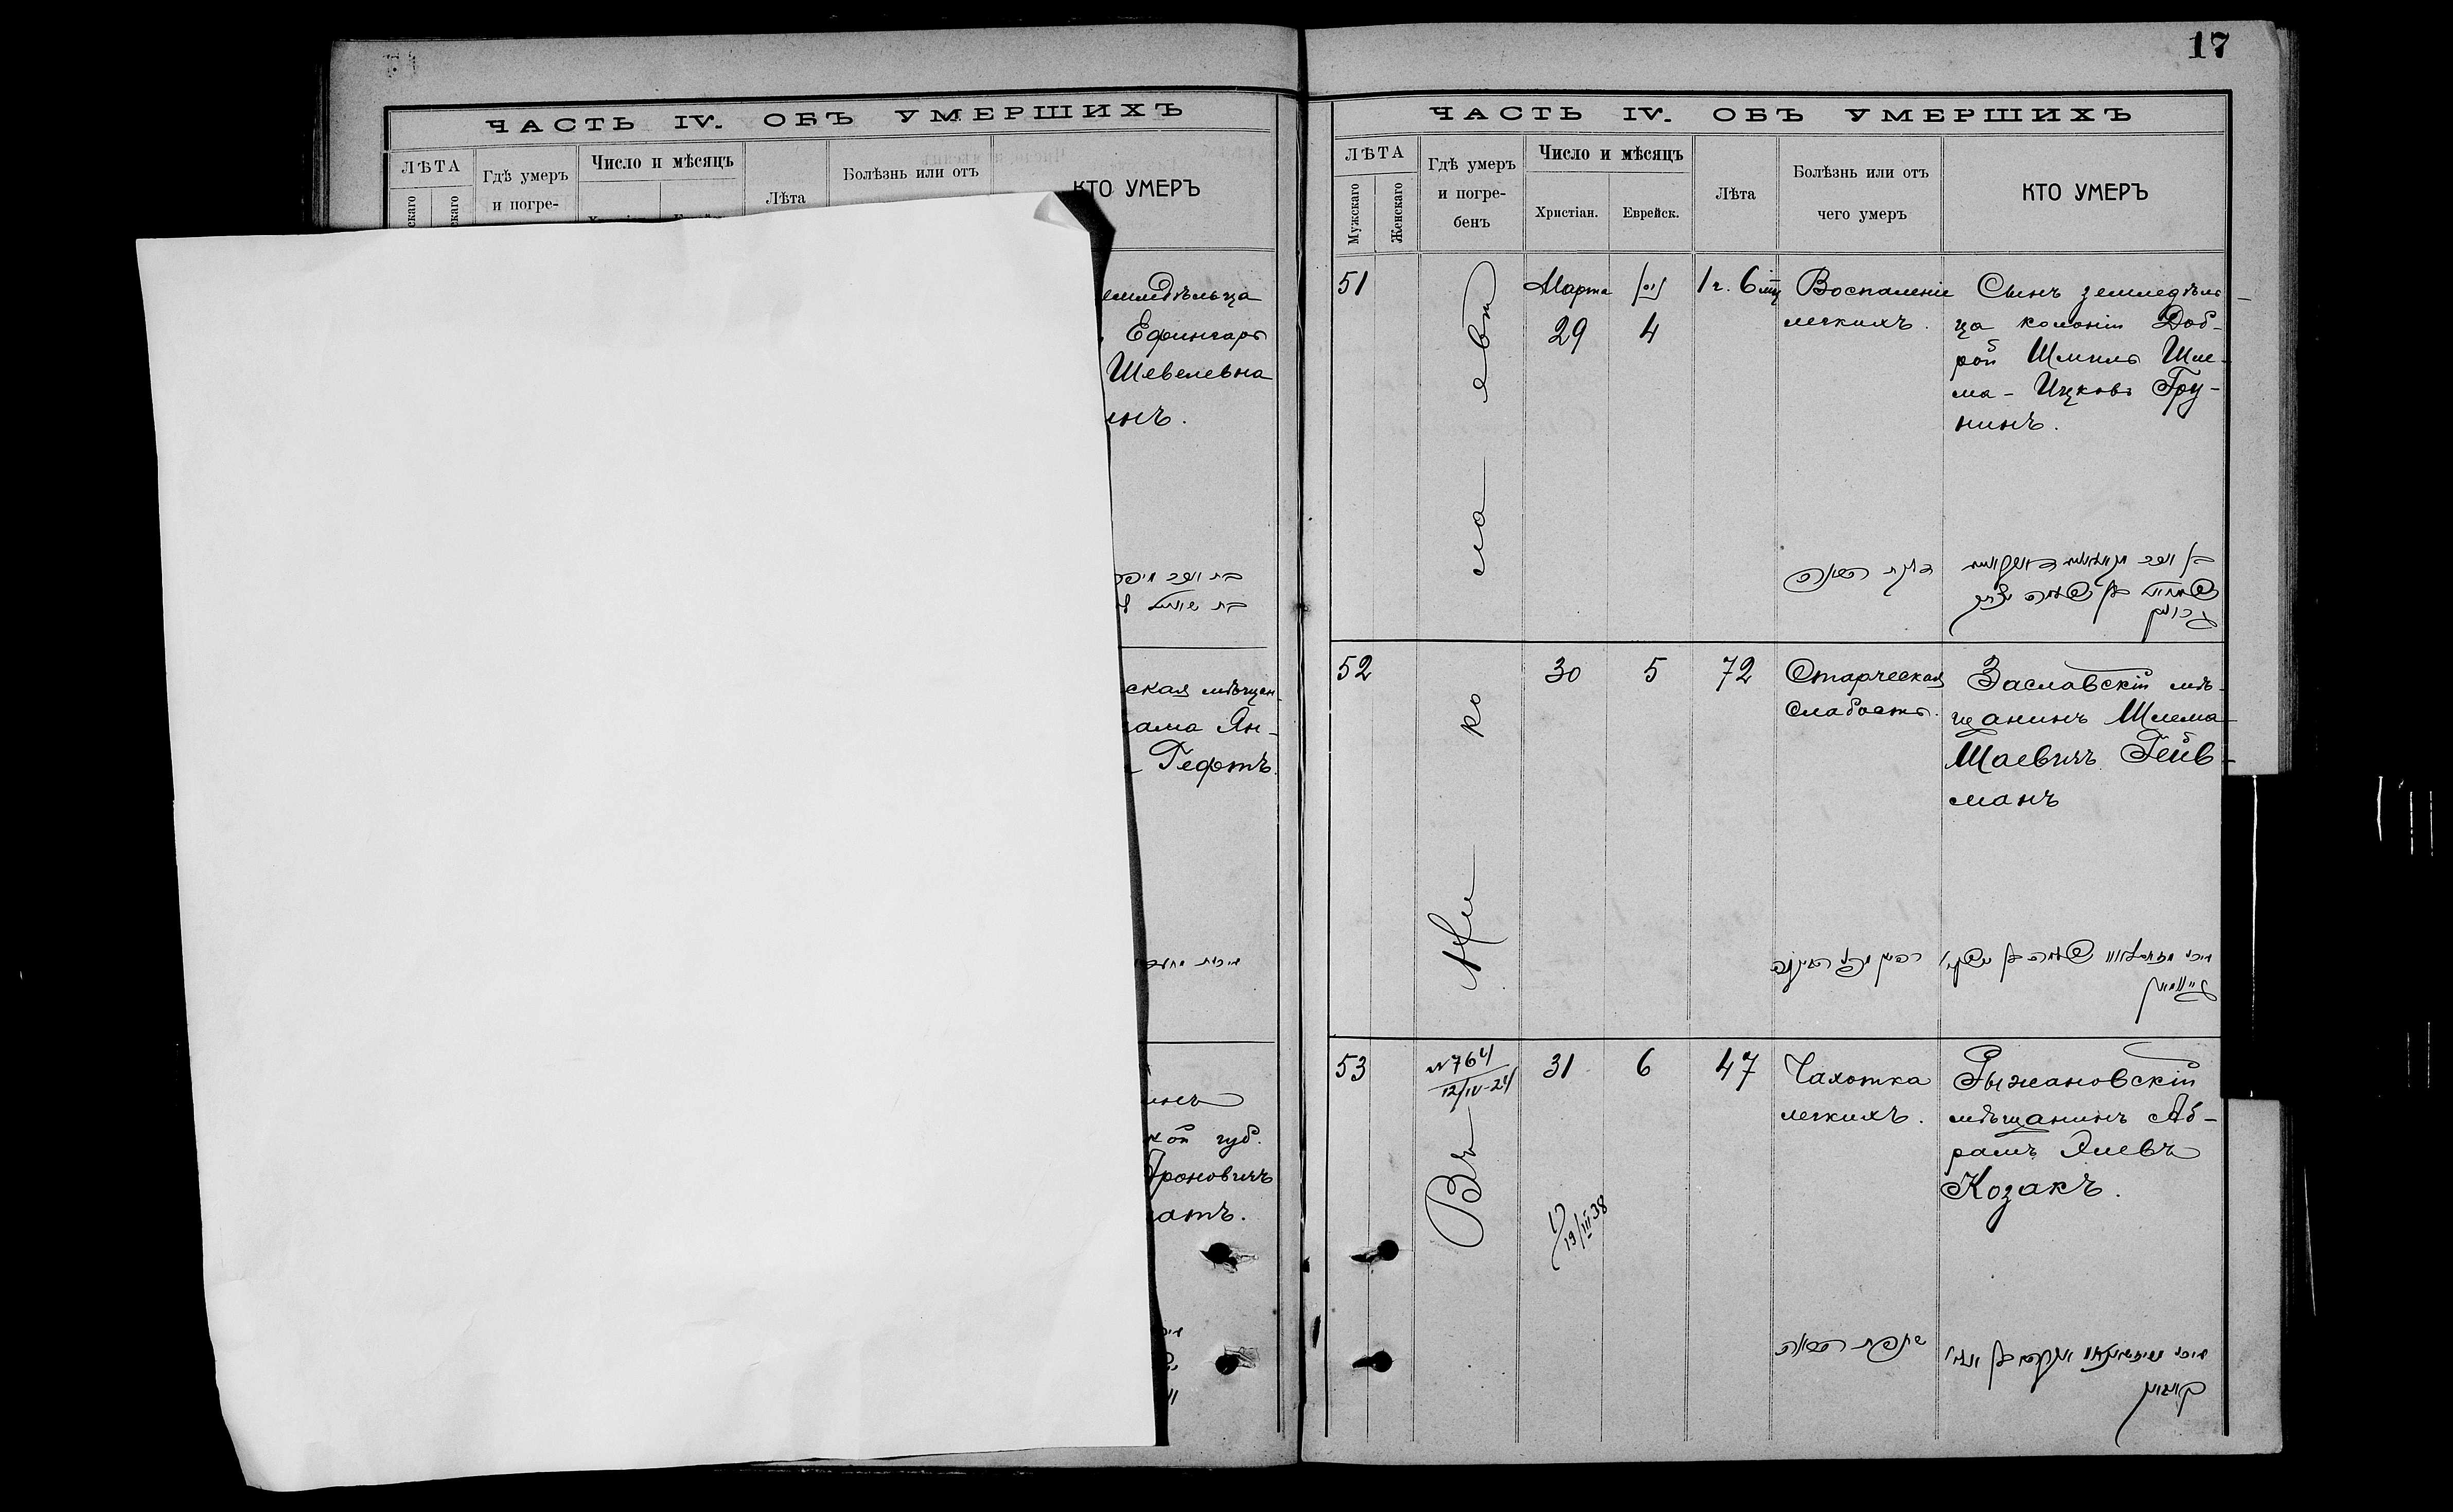 ЧАСТЬ IV. ОБЪ УМЕРШИХЪ
ЛѢТА
скаго
скаго
Гдѣ умеръ
и погре-
Число и мѣсяцъ
Лѣта
Болѣзнь или отъ
КТО УМЕРЪ
емледѣльца
Ефингаръ
Шевелевна
инъ.
ская мѣщан
Ян-
Гефтъ.
кой губ.
роновичъ
атъ.
17
ЧАСТЬ IV. ОБЪ УМЕРШИХЪ
ЛѢТА
Мужскаго
Женскаго
Гдѣ умеръ
и погре-
бенъ
Число и мѣсяцъ
Христіан.
Еврейск.
Лѣта
Болѣзнь или отъ
чего умеръ
КТО УМЕРЪ
Въ Ни ко ла евѣ
51
Марта
29
ניסן
4
1 г. 6 мц
Воспаленіе
легкихъ.
Сынъ земледѣль
ца колоніи Доб-
рой Шмиль Шле-
ма - Ицковъ Гру-
нинъ.
דלקת הריאה
52
30
5
72
Старческая
Слабость.
Заславскій мѣ-
щанинъ Шлема
Шаевичъ Гейв-
манъ
53
№764
12/IV-24
31
6
47
Чахотка
легкихъ.
Рыжановскій
мѣщанинъ Аб-
рамъ Элевъ
Козакъ.
19/III 38
שחפת הריאה